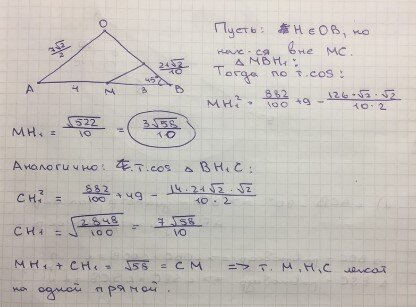 O
7√2/2
21√2/10
45°
A 4 M 3 B
Пусть: H∈OB, но
нах-ся вне MC.
△MBH₁:
Тогда по т.cos:
MH₁² = 882/100 + 9 - 126·√2·√2/10·2
MH₁ = √522/10 = 3√58/10
Аналогично: т.cos △BH₁C:
CH₁² = 882/100 + 49 - 14·21√2·√2/10·2
CH₁ = √2848/100 = 7√58/10
MH₁ + CH₁ = √58 = CM => т. M, H, C лежат
на одной прямой.